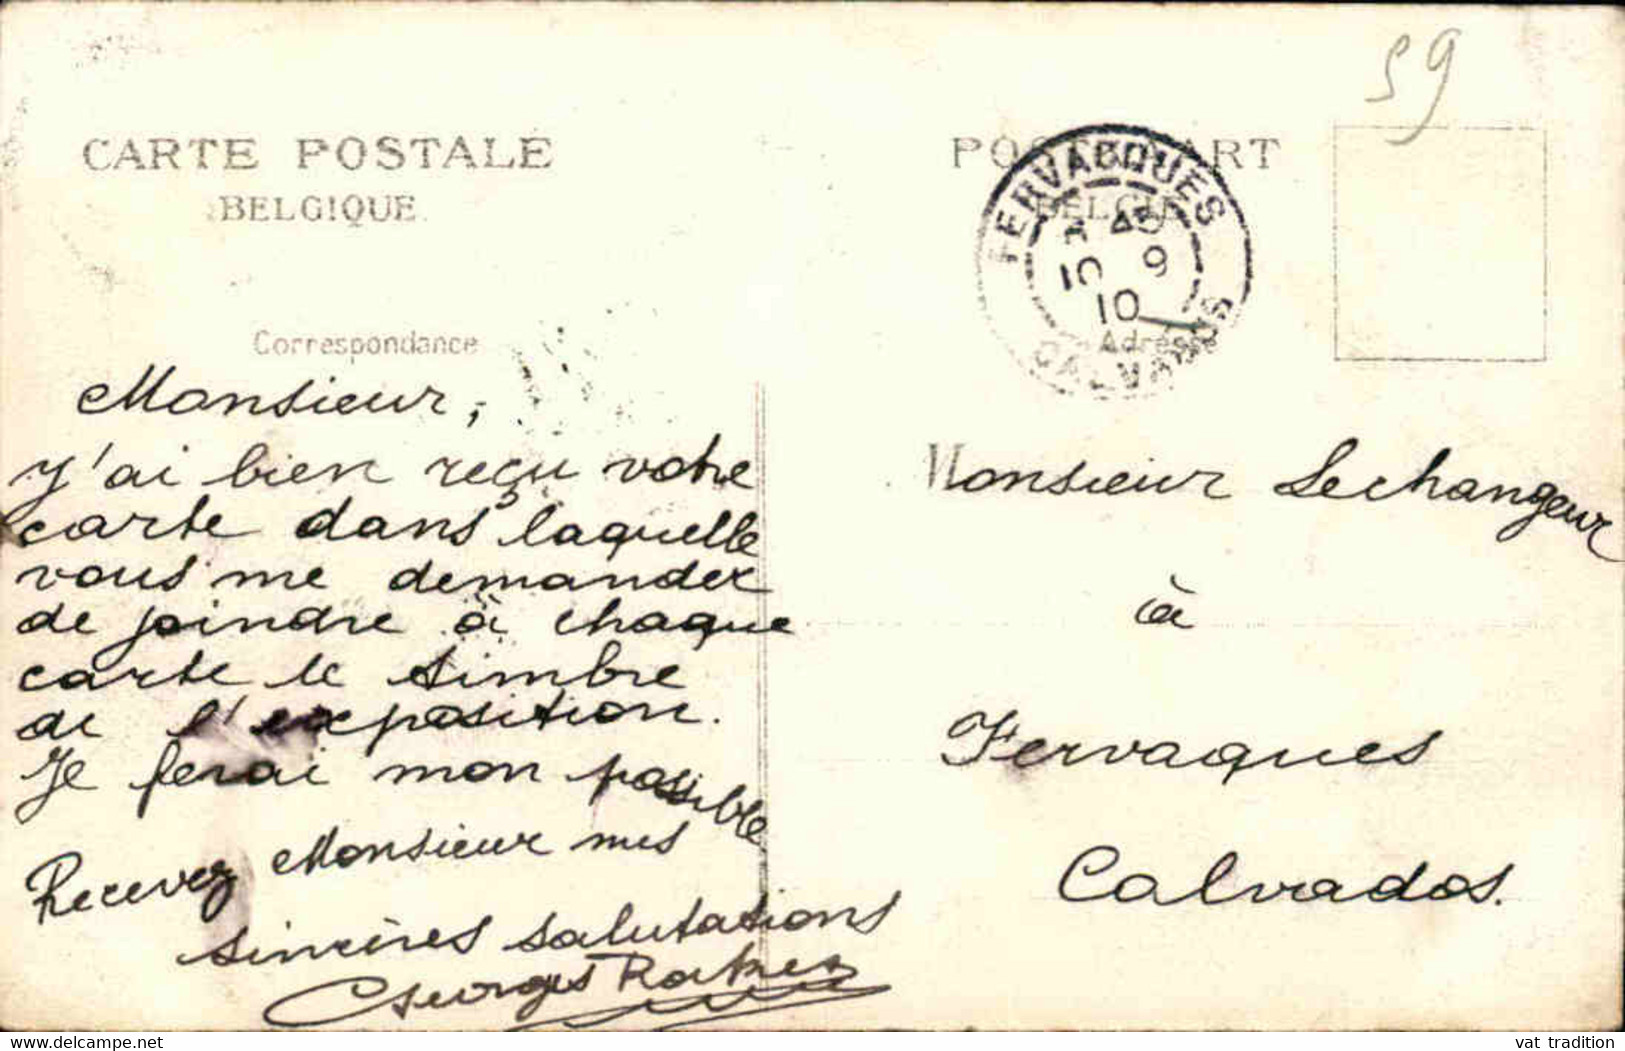 59
CARTE POSTALE
BELGIQUE
Correspondance
Monsieur,
J'ai bien reçu votre
carte dans laquelle
vous me demander
de joindre à chaque
carte le timbre
de l'exposition.
Je ferai mon possible
Recevez Monsieur mes
sincères salutations
Georges
BELGIE
FERVACQUES
45
10 9
10
CALVADOS
Adresse
Monsieur Lechangeur
à
Fervaques
Calvados.
www.delcampe.net
vat tradition